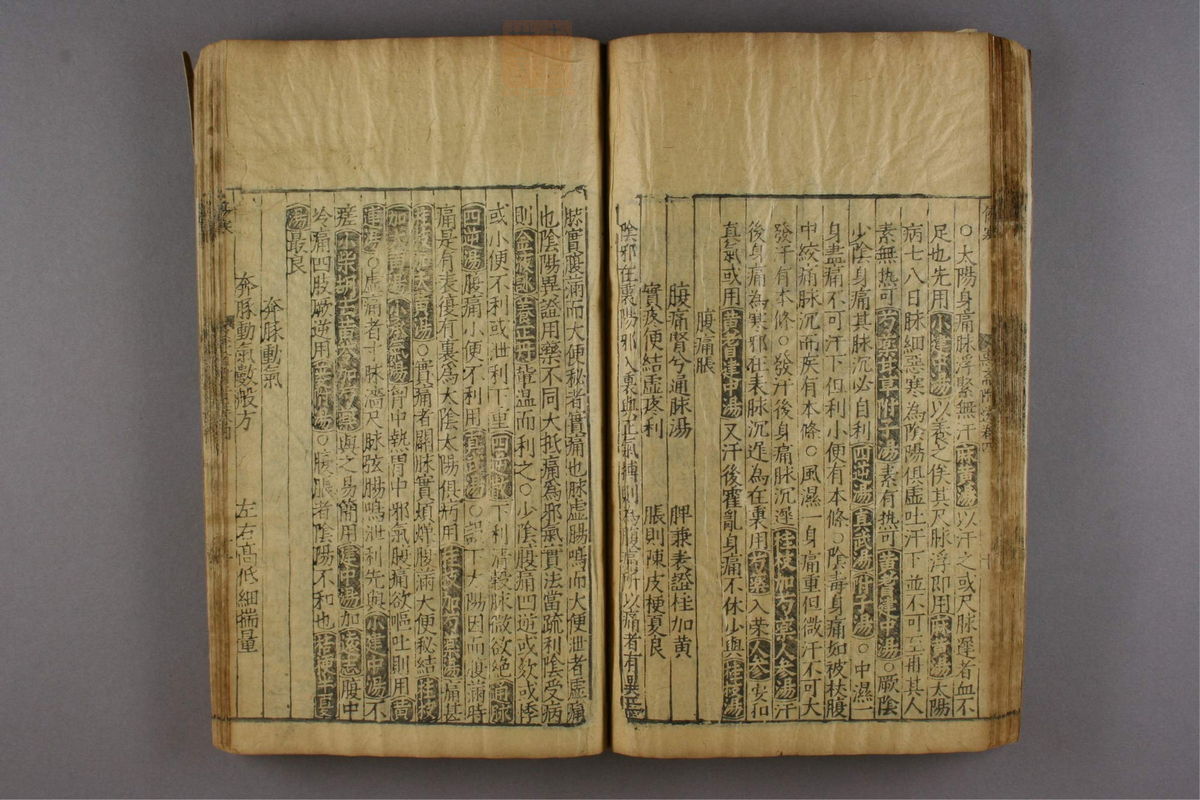 ○太陽身痛脉浮緊無汗麻黄湯以汗之或尺脉遲者血不
足也先用小建中湯以養之俟其尺脉浮即用麻黄湯太陽
病七八日脉細惡寒為陰陽俱虛吐汗下並不可至冊其人
素無熱可芍藥甘草附子湯素有熱可黄耆建中湯○厥陰
少陰身痛其脉沉必自利四逆湯真武湯附子湯○中濕一
身盡痛不可汗下但利小便有本條○陰毒身痛如被杖腹
中絞痛脉沉而疾有本條○風濕一身痛重但微汗不可大
發汗有本條○發汗後身痛脉沉遲桂枝加芍藥人參湯汗
後身痛為寒邪在表脉沉遲為在裏用芍藥入荣人參安和
真氣或用黄耆建中湯又汗後霍亂身痛不休少與桂枝湯
腹痛脹
腹痛腎兮通脉湯 脾兼表證桂加黄
實疼便結虛疼利 脹則陳皮梗夏良
陰邪在裏陽邪入裏與正氣搏則為腹痛所以痛者有異
脉實腹滿而大便秘者實痛也脉虛腸鳴而大便泄者虛痛
也陰陽異謚用藥不同大抵痛為邪氣貫法當疏利陰受病
則温而利之○少陰腹痛四逆或欬或悸
或小便不利或泄利下重四逆散下利清穀脉微欲絶通脉
四逆湯腹痛小便不利用真武湯○誤下太陽因而腹滿時
痛是有表復有裏為太陰太陽俱病用桂枝加芍藥湯痛甚
桂枝加大黄湯○實痛者關脉實煩燥腹滿大便秘結桂枝
加大黄湯小承氣湯胃中熱胃中邪氣腹痛欲嘔吐則用黄
連湯○虛痛者寸脉濇尺脉弦腸鳴泄利先與小建中湯不
瘥小柴胡去黄芩加芍藥與之易簡用建中湯加遠志腹中
冷痛四肢厥逆用薑附湯○腹脹者陰陽不和也桔梗半夏
湯最良
奔豚動氣
奔豚動氣數般方 左右高低細揣量